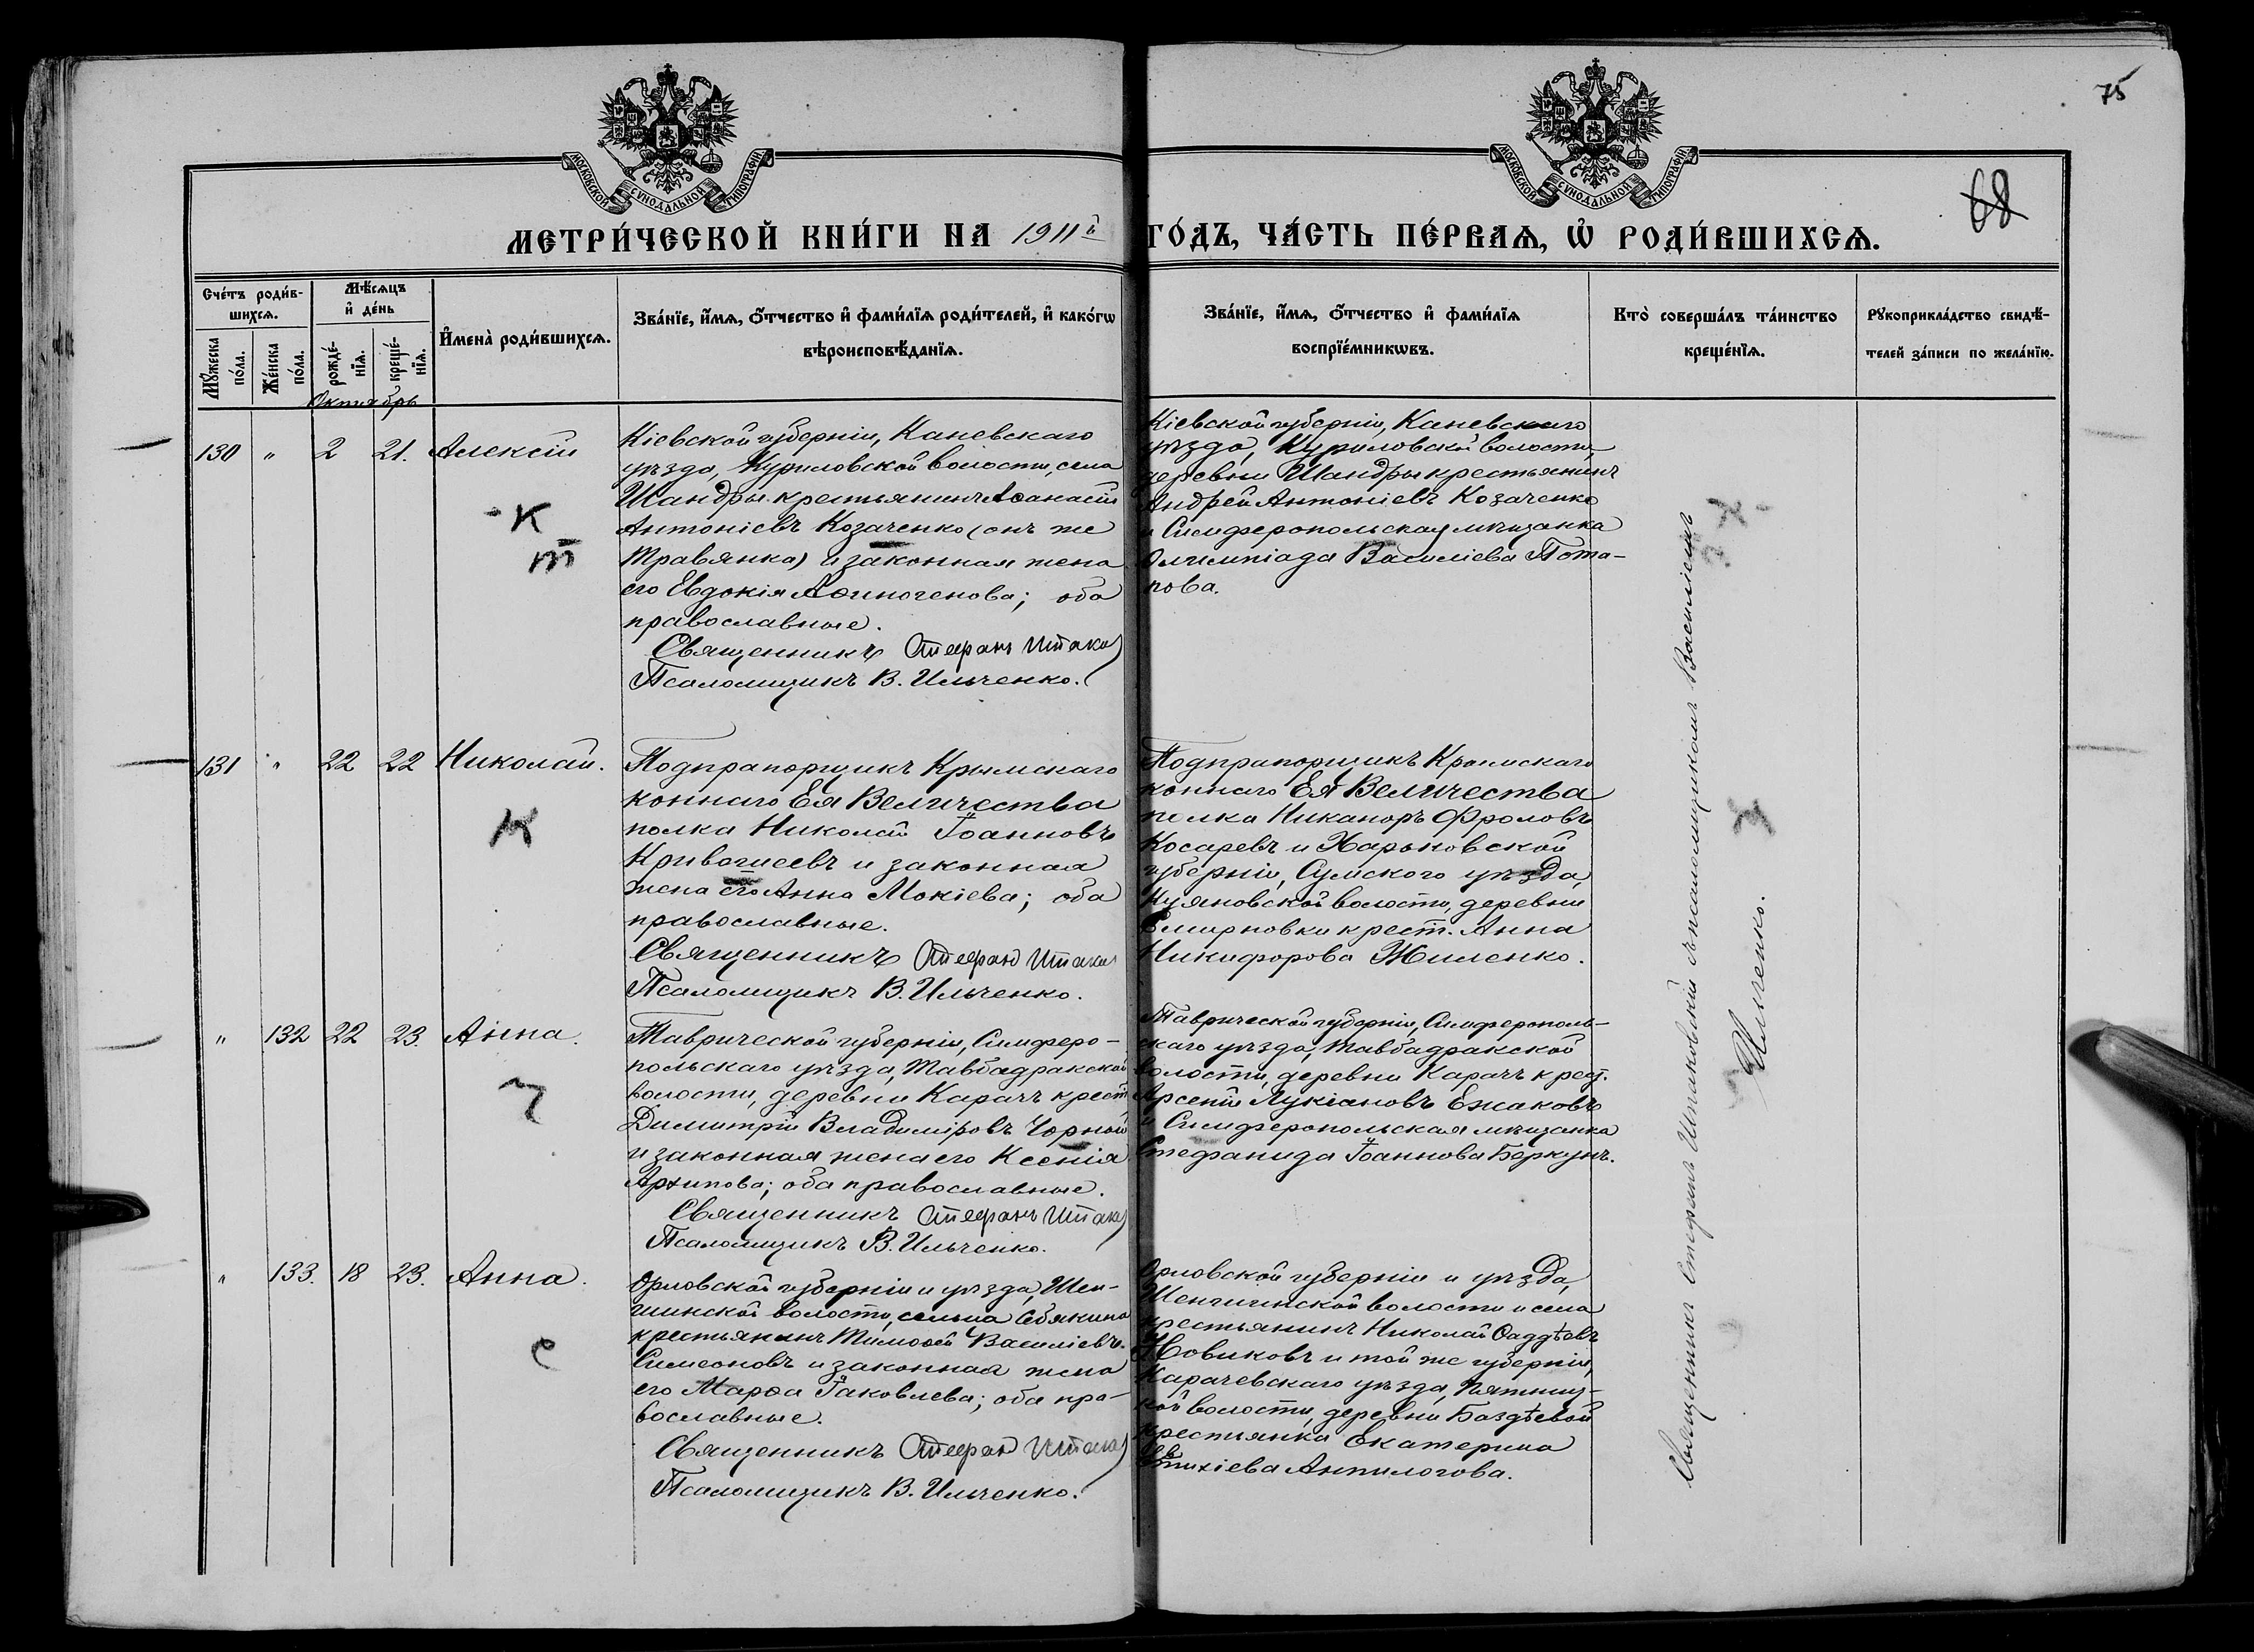 75
68
МОСКОВСКОЙ СѴНОДАЛЬНОЙ ТИПОГРАФІИ
МОСКОВСКОЙ СѴНОДАЛЬНОЙ ТИПОГРАФІИ
МЕТРИ́ЧЕСКОЙ КНИ́ГИ НА 1911й ГО́ДЪ, ЧА́СТЬ ПЕ́РВАѦ, Ѡ҆ РОДИ́ВШИХСѦ.
Сче́тъ роди́в-
шихсѧ.
Мꙋ́жеска
по́ла.
Же́нска
по́ла.
Мѣ́сѧцъ
и҆ де́нь
рожде́-
нїѧ.
креще́-
нїѧ.
И҆мена̀ роди́вшихсѧ.
Зва́нїе, и҆́мѧ, ѻ҆́тчество и҆ фами́лїѧ роди́телей, и҆ како́гѡ
вѣроисповѣ́данїѧ.
Зва́нїе, и҆́мѧ, ѻ҆́тчество и҆ фами́лїѧ
воспрїе́мникѡвъ.
Кто̀ соверша́лъ та́инство
креще́нїѧ.
Рꙋкоприкла́дство свидѣ́-
телей за́писи по жела́нїю.
Октябрь
130 " 2 21. Алексій
Кіевской губерніи, Каневскаго
уѣзда, Куриловской волости, села
Шандры крестьянинъ Аѳанасій
Антоніевъ Козаченко (онъ же
Травянка) и законная жена
его Евдокія Аѳиногенова; оба
православные.
Священникъ Стефанъ Штака
Псаломщикъ В. Ильченко.
Кіевской губерніи, Каневскаго
уѣзда, Куриловской волости,
деревни Шандры крестьянинъ
Андрей Антоніевъ Козаченко
и Симферопольская мѣщанка
Олимпіада Василіева Пота-
пова.
К
т
131 " 22 22 Николай.
Подпрапорщикъ Крымскаго
коннаго Ея Величества
полка Николай Іоанновъ
Кривошеевъ и законная
жена его Анна Мокіева; оба
православные.
Священникъ Стефанъ Штака
Псаломщикъ В. Ильченко.
Подпрапорщикъ Крымскаго
коннаго Ея Величества
полка Никаноръ Фроловъ
Косаревъ и Харьковской
губерніи, Сумского уѣзда,
волости, деревни
Смирновки крест. Анна
Никифорова Жиленко.
К
" 132 22 23. Анна.
Таврической губерніи, Симферо-
польскаго уѣзда, Тавбадракской
волости, деревни Карачъ крест.
Димитрій Владиміровъ Чорной
и законная жена его Ксенія
Архипова; оба православные.
Священникъ Стефанъ Штака
Псаломщикъ В. Ильченко.
Таврической губерніи, Симферополь-
скаго уѣзда, Тавбадракской
волости, деревни Карачъ крест.
Арсеній Лукіановъ Ежаковъ
и Симферопольская мѣщанка
Стефанида Іоаннова Беркунъ.
Ч
" 133. 18 23. Анна.
Орловской губерніи и уѣзда, Шен-
шинской волости, сельца Себякина
крестьянинъ Тимоѳей Василіевъ
Симеоновъ и законная жена
его Марѳа Іаковлева; оба пра-
вославные.
Священникъ Стефанъ Штака
Псаломщикъ В. Ильченко.
Орловской губерніи и уѣзда,
волости и села
крестьянинъ Николай Ѳаддѣевъ
Новиковъ и той же губерніи,
Карачевскаго уѣзда, Пятниц-
кой волости, деревни Баздѣевой
крестьянка Екатерина
Евтихіева Анпилогова.
С
Священникъ Стефанъ Штаковскій съ псаломщикомъ Василіемъ
Ильченко.